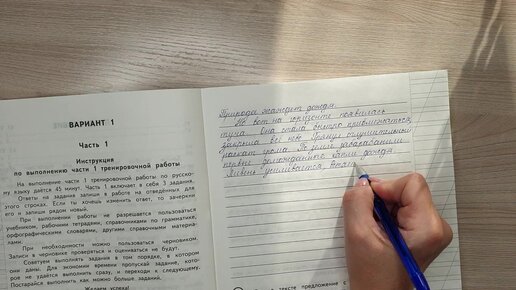 ВАРИАНТ 1
Часть 1
Инструкция
по выполнению части 1 тренировочной работы
На выполнение части 1 тренировочной работы по русско-
му языку даётся 45 минут. Часть 1 включает в себя 3 задания.
Ответы на задания запиши в работе на отведённых для
этого строках. Если ты хочешь изменить ответ, то зачеркни
его и запиши рядом новый.
При выполнении работы не разрешается пользоваться
учебником, рабочими тетрадями, справочниками по грамматике,
орфографическими словарями, другими справочными материа-
лами.
При необходимости можно пользоваться черновиком.
Записи в черновике проверяться и оцениваться не будут.
Советуем выполнять задания в том порядке, в котором
они даны. Для экономии времени пропускай задание, кото-
рое не удаётся выполнить сразу, и переходи к следующему.
Постарайся выполнить как можно больше заданий.
Желаем успеха!
Природа жаждет дождя.
Но вот на горизонте появилась
туча. Она стала быстро приближаться,
закрыла всё небо. Грянул оглушительный
раскат грома. По земле забарабанили
первые долгожданные капли дождя.
Ливень усиливается.
в тексте предложение с